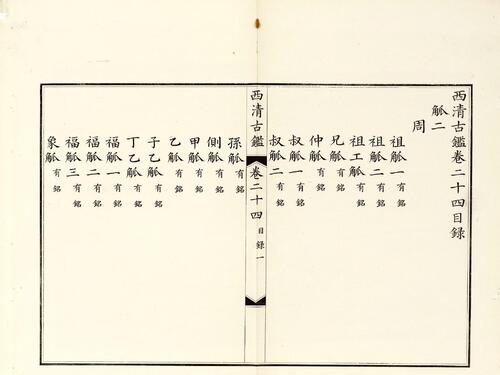 西清古鑑卷二十四目録
觚二
周
祖觚一有銘
祖觚二有銘
祖工觚有銘
兄觚有銘
仲觚有銘
叔觚一有銘
叔觚二有銘
西清古鑑 卷二十四 目録一
孫觚有銘
側觚有銘
甲觚有銘
乙觚有銘
子乙觚有銘
丁乙觚有銘
福觚一有銘
福觚二有銘
福觚三有銘
象觚有銘